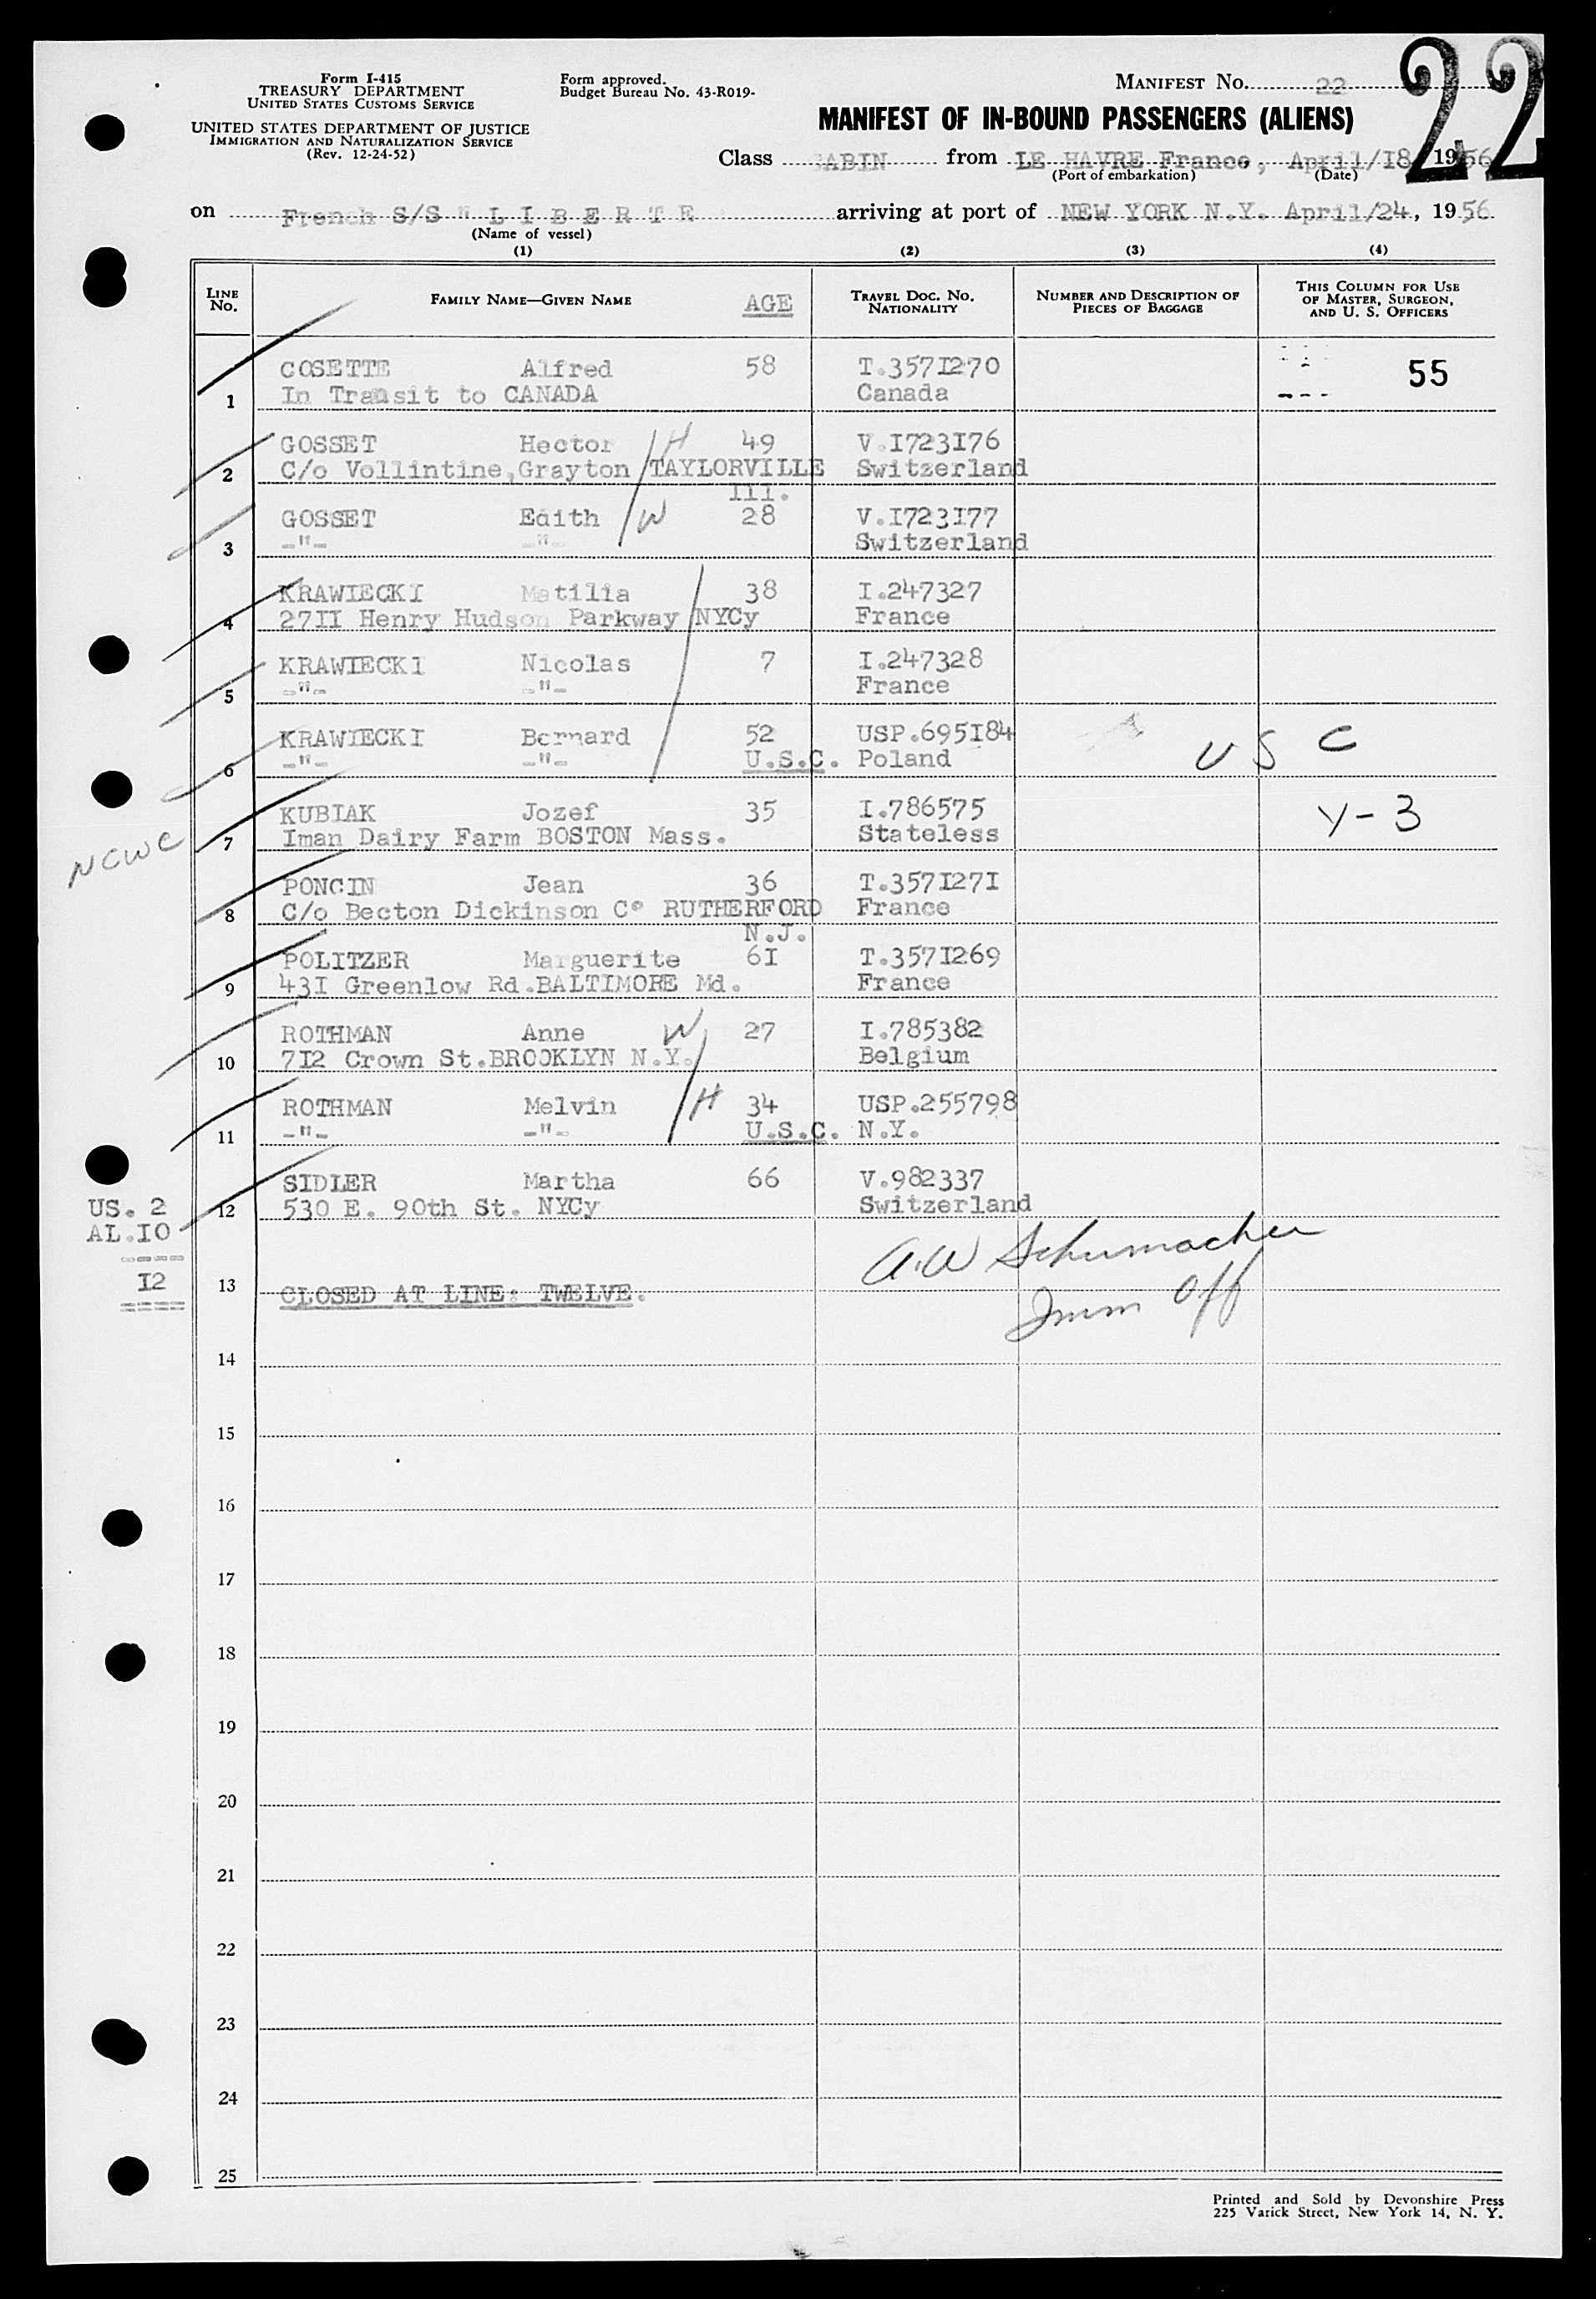 Form I-415
TREASURY DEPARTMENT
UNITED STATES CUSTOMS SERVICE
UNITED STATES DEPARTMENT OF JUSTICE
IMMIGRATION AND NATURALIZATION SERVICE
(Rev. 12-24-52)
Form approved.
Budget Bureau No. 43-R019-
MANIFEST No. 22
22
MANIFEST OF IN-BOUND PASSENGERS (ALIENS)
Class CABIN from LE HAVRE France, April/18 1956
(Port of embarkation) (Date)
on French S/S " L I B E R T E arriving at port of NEW YORK N.Y. April/24, 1956
(Name of vessel)
(1) (2) (3) (4)
LINE No. FAMILY NAME—GIVEN NAME AGE TRAVEL DOC. No. NATIONALITY NUMBER AND DESCRIPTION OF PIECES OF BAGGAGE THIS COLUMN FOR USE OF MASTER, SURGEON, AND U. S. OFFICERS
COSETTE Alfred 58 T.3571270 55
1 In Transit to CANADA Canada
GOSSET Hector H 49 V.1723176
2 C/o Vollintine,Grayton TAYLORVILLE Switzerland
Ill.
GOSSET Edith W 28 V.1723177
3 -"- -"- Switzerland
KRAWIECKI Matilia 38 I.247327
4 2711 Henry Hudson Parkway NYCy France
KRAWIECKI Nicolas 7 I.247328
5 -"- -"- France
KRAWIECKI Bernard 52 USP.695184 U S C
6 -"- -"- U.S.C. Poland
KUBIAK Jozef 35 I.786575 Y-3
7 Iman Dairy Farm BOSTON Mass. Stateless
NCWC
PONCIN Jean 36 T.3571271
8 C/o Becton Dickinson C° RUTHERFORD France
N.J.
POLITZER Marguerite 61 T.3571269
9 431 Greenlow Rd.BALTIMORE Md. France
ROTHMAN Anne W 27 I.785382
10 712 Crown St.BROOKLYN N.Y. Belgium
ROTHMAN Melvin H 34 USP.255798
11 -"- -"- U.S.C. N.Y.
SIDLER Martha 66 V.982337
12 530 E. 90th St. NYCy Switzerland
US. 2
AL.10
----
12
====
A.W Schumacher
Imm Off
13 CLOSED AT LINE: TWELVE.
14
15
16
17
18
19
20
21
22
23
24
25
Printed and Sold by Devonshire Press
225 Varick Street, New York 14, N. Y.